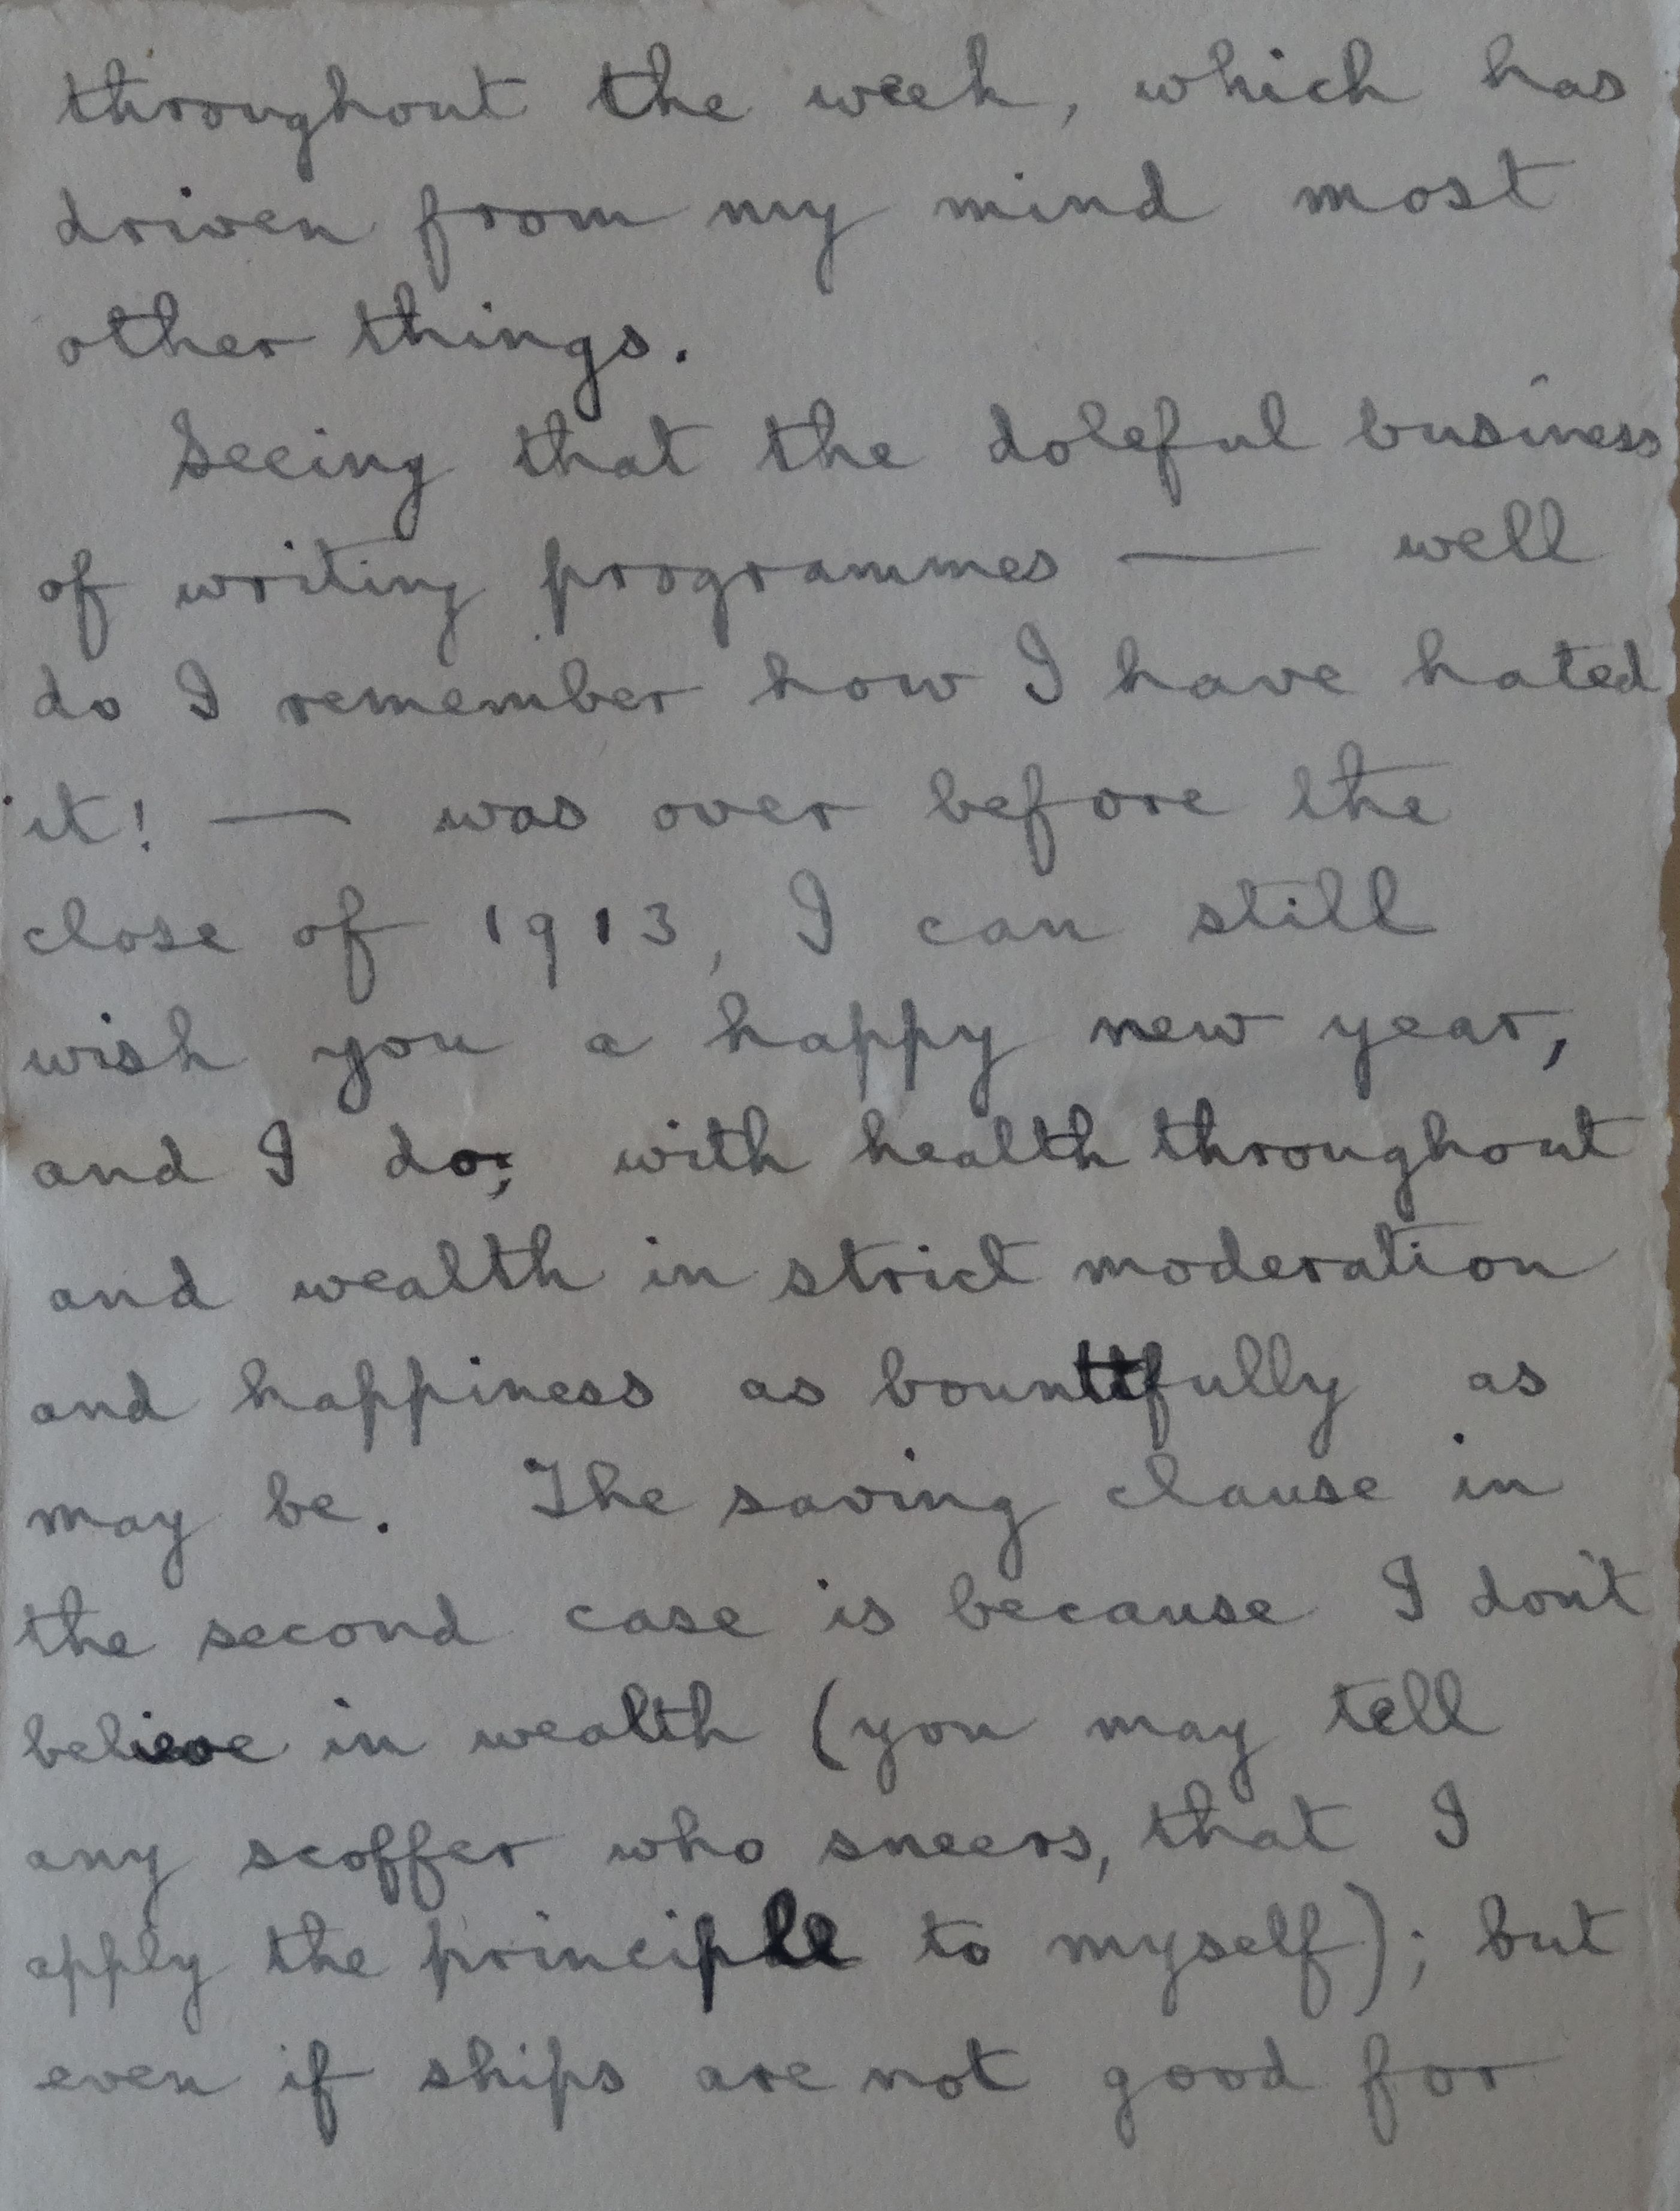 throughout the week, which has
driven from my mind most
other things.
Seeing that the doleful business
of writing programmes — well
do I remember how I have hated
it! — was over before the
close of 1913, I can still
wish you a happy new year,
and I do; with health throughout
and wealth in strict moderation
and happiness as bountifully as
may be. The saving clause in
the second case is because I don't
believe in wealth (you may tell
any scoffer who sneers, that I
apply the principle to myself); but
even if ships are not good for